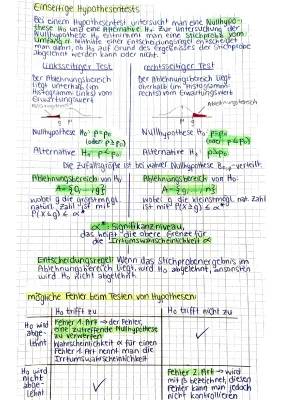 Einseitige Hypothesentests
Bei einem Hypothesentest untersucht man eine Nullhypo-
these H₀ und eine Alternative H₁. Zur Untersuchung der
Nullhypothese H₀ entnimmt man eine Stichprobe vom
Umfang n. Mithilfe einer Entscheidungsregel entscheidet
man dann, ob H₀ auf Grund des Ergebnisses der Stichprobe
abgelehnt werden kann oder nicht.
Linksseitiger Test
Der Ablehnungsbereich
liegt unterhalb (im
Histogramm links) vom
Erwartungswert
Ablehnungsbereich
g μ
Nullhypothese H₀: p=p₀
(oder p≥p₀)
Alternative H₁: p<p₀
rechtsseitiger Test
Der Ablehnungsbereich liegt
oberhalb (im Histogramm
rechts) vom Erwartungswert
Ablehnungsbereich
μ g
Nullhypothese H₀: p=p₀
(oder p≤p₀)
Alternative H₁: p>p₀
Die Zufallsgröße ist bei wahrer Nullhypothese -verteilt.
Ablehnungsbereich von H₀:
A={0,...,g}
wobei g die größtmögl.
natürl. Zahl ist mit
P(X≤g) ≤ α*
Ablehnungsbereich von H₀:
A={g,...,n}
wobei g die kleinstmögl. nat. Zahl
ist mit P(X≥g) ≤ α*
α*: Signifikanzniveau,
das heißt die obere Grenze für
die Irrtumswahrscheinlichkeit α
Entscheidungsregel: Wenn das Stichprobenergebnis im
Ablehnungsbereich liegt, wird H₀ abgelehnt, ansonsten
wird H₀ nicht abgelehnt.
mögliche Fehler beim Testen von Hypothesen:
H₀ trifft zu
H₀ trifft nicht zu
H₀ wird
abge-
lehnt
Fehler 1. Art → der Fehler,
eine zutreffende Nullhypothese
zu verwerfen
Wahrscheinlichkeit α für einen
Fehler 1. Art nennt man die
Irrtumswahrscheinlichkeit
✓
H₀ wird
nicht
abge-
lehnt
✓
Fehler 2. Art → wird
mit β bezeichnet, diesen
Fehler kann man jedoch
nicht kontrollieren